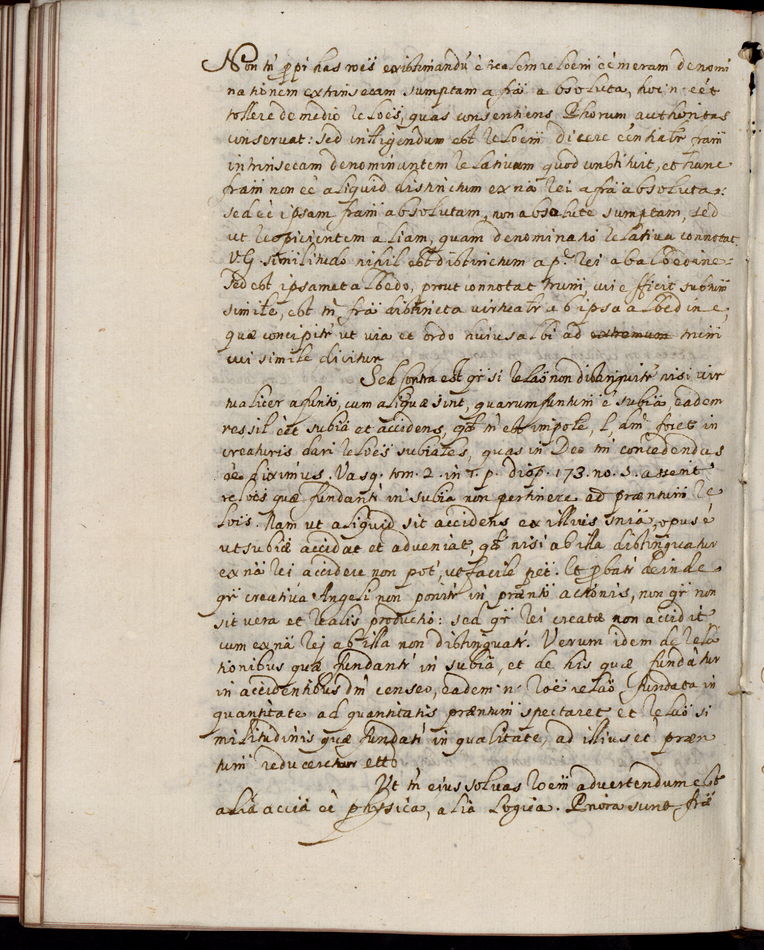 Non tñ ppi has roẽs existimandũ ẽ realem reloẽm eẽ meram denomi
nationem extrinsecam sumptam a frã absoluta, hoc n. eẽt
tollere de medio reloẽs, quas consentiens Phorum authoritas
conservat: sed intlligendum est reloẽm dicere eẽntialr frãm
intrinsecam denominantem relativum quod constituit, et hanc
frãm non eẽ aliquid distinctum ex nã rei a frã absoluta:
sed eẽ ipsam frãm absolutam, non absolute sumptam, sed
ut respicientem aliam, quam denominatio relativa connotat
V.G. similitudo nihil est distinctum a p. rei ab albedine:
sed est ipsamet albedo, prout connotat trũm, cui efficit subtũm
simile, est tñ frã distincta virtualr ab ipsa albedine,
quæ concipitr ut via et ordo huius albi ad extremum trũm
cui simile dicitur
Sed contra est qr̃ si relaõ non distinguitr nisi vir
tualiter a funto, cum aliquæ sint, quarum funtum ẽ subiã eadem
res sit eẽt subiã et accidens, qd tñ est impole, l' dñi foret in
creaturis dari reloẽs subiales, quas in Deo tñ concedendas
eẽ diximus. Vasq. tom. 2. in 1. p. disp. 173. no. 5. asserit
reloẽs quæ fundantr in subiã non pertinere ad præntum re
lois. Nam ut aliquid sit accidens ex illius sniã, opus ẽ
ut subiæ accidat et adveniat, qd nisi ab illa distinguatur
ex nã rei accidere non pot, ut facile pẽt. Et pbatr deinde
qr̃ creativa Angeli non ponitr in prænto actionis, non qr̃ non
sit vera et realis productio: sed qr̃ rei creatæ non accidit
cum ex nã rej ab illa non distinguatr. Verum idem de rela
tionibus quæ fundantr in subiã, et de his quæ fundãtur
in accidentibus dñi censeo, eadem n. roẽ relaõ fundata in
quantitate ad quantitatis præntum spectaret et relaõ si
militudinis quæ fundatr in qualitate, ad illius et præn
tum reduceretur etto
Ut tñ eius solvas roẽm advertendum est
alia acciã eẽ physica, alia Logica. Priora sunt fræ